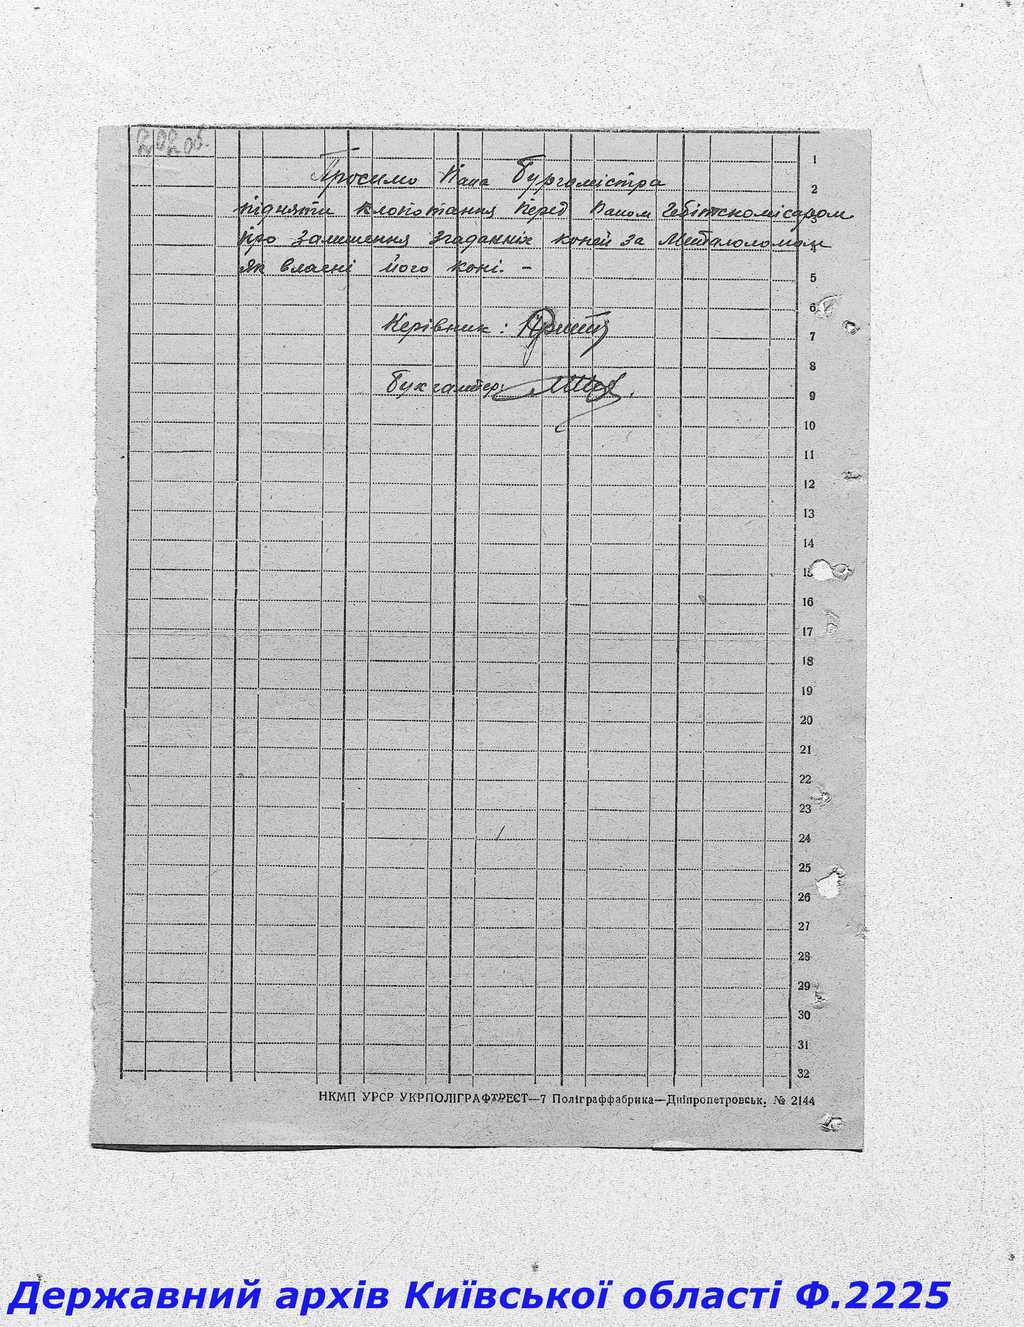 202 об.
1
Просимо Пана Бургомістра
2
підняти клопотання перед Паном Гебітскомісаром
3
про залишення згаданніх коней за Металоломом
4
як власні його коні. –
5
6
Керівник:
7
8
Бухгалтер:
9
10
11
12
13
14
15
16
17
18
19
20
21
22
23
24
25
26
27
28
29
30
31
32
НКМП УРСР УКРПОЛІГРАФТРЕСТ—7 Поліграффабрика—Дніпропетровськ. № 2144
Державний архів Київської області Ф.2225